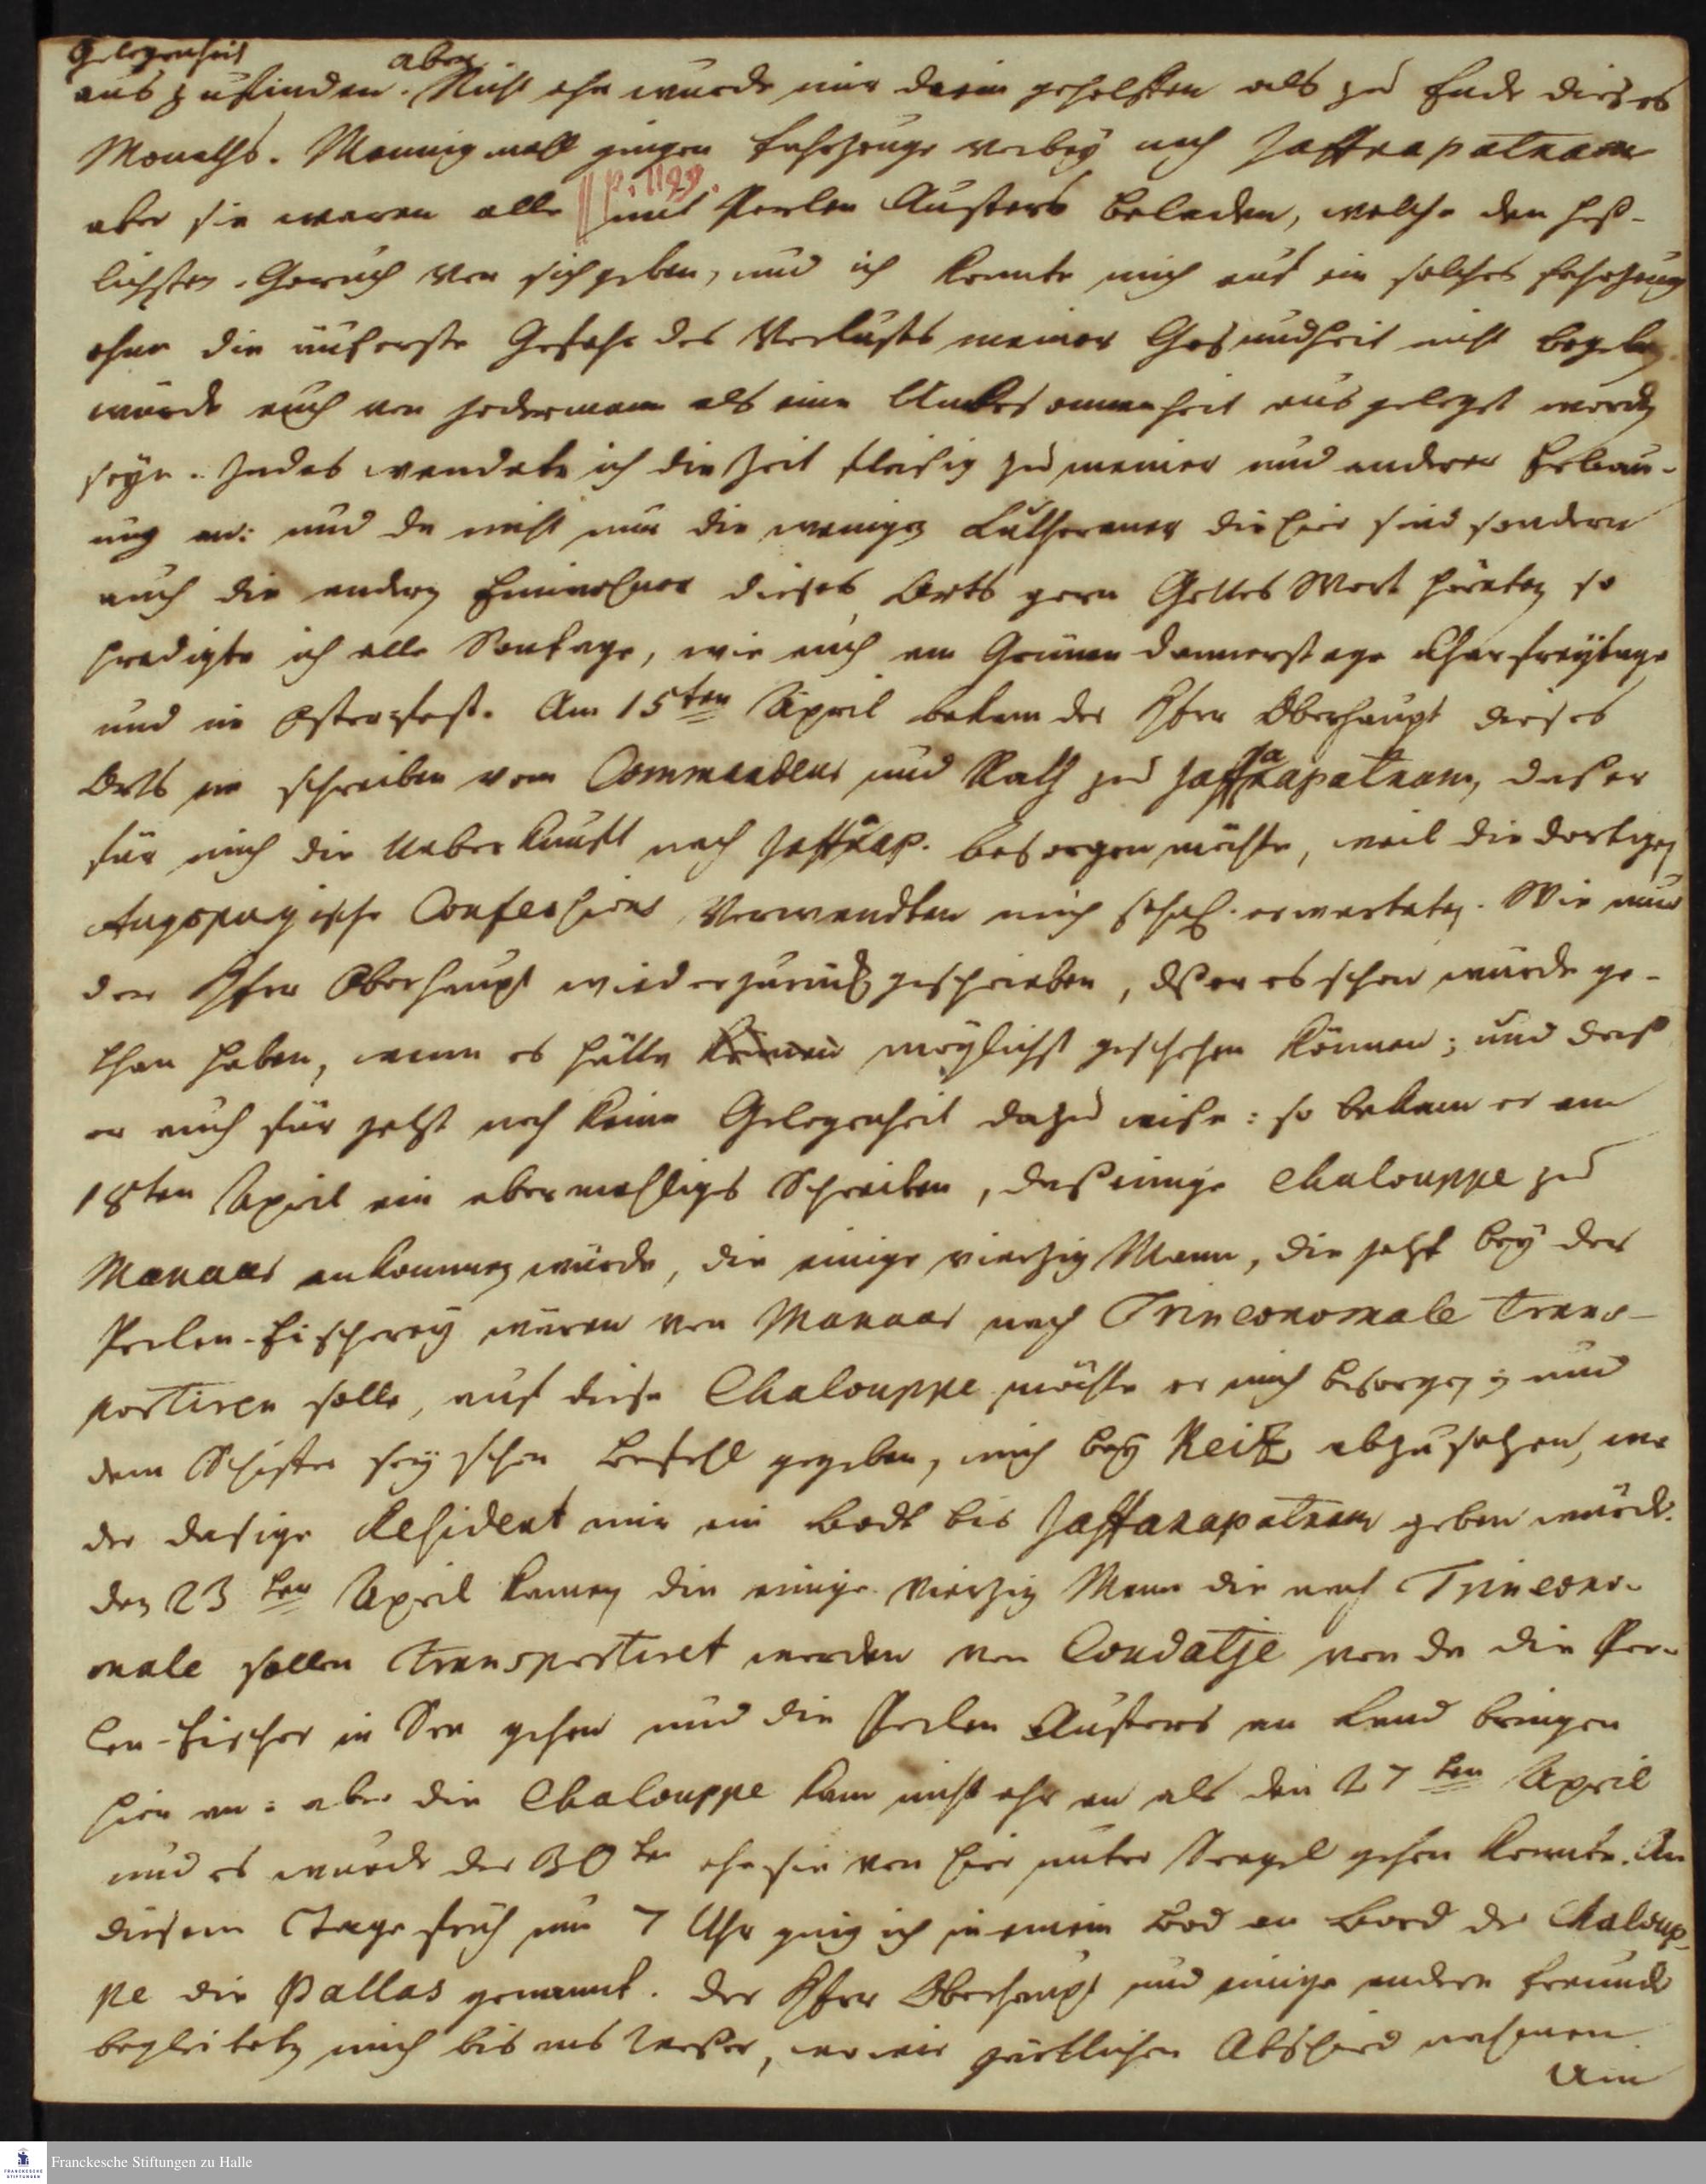 Gelegenheit
auszufinden. aber Nicht ehe wurde mir darin geholffen als zu Ende dieses
Monaths. Mannigmall gingen Fahrzeuge verbey nach Jaffnapatnam
|| p. 1129.
aber sie waren alle mit Perlen Austers beladen, welche den heß-
lichsten Geruch von sich geben, und ich konnte mich auf ein solches Fahrzeug
ohne die äuserste Gefahr des Verlusts meiner Gesundheit nicht begeben
würde auch von jedermann als eine Unbesonnenheit ausgelegt worden
seyn. Indes wendete ich die Zeit fleisig zu meiner und anderer Erbau-
ung an: und da nicht nur die wenigen Lutheraner die hier sind sondern
auch die andern Einwohner dieses Orts gern Gottes Wort hörten so
predigte ich alle Sontage, wie auch am Grünen Donnerstage Charfreytage
und im Osterfest. Am 15ten April bekam der Herr Oberhaupt dieses
Orts ein schreiben vom Commandeur und Rath zu Jaffanapatnam, daß er
für mich die Ueberkunft nach Jaffanap. besorgen möchte, weil die dortigen
Augspurgische Confessions Verwandten mich sehnl. erwarteten. Wie nun
der Herr Oberhaupt wieder zurück geschrieben, dß er es schon würde ge-
than haben, wenn es hätte können möglichst geschehen können; und daß
er auch für jetzt noch keine Gelegenheit dazu wiße: so bekam er am
18ten April ein abermahliges Schreiben, daß einige Chalouppe zu
Manaar ankommen würde, die einige vierzig Mann, die jetzt bey der
Perlen-Fischerey wären von Manaar nach Trinconomale trans-
portiren solle, auf diese Chalouppe möchte er mich besorgen; und
dem Schiffer sey schon befehl gegeben, mich bey Keitz abzusetzen, wo
der dasige Resident mir ein Bodt bis Jaffanapatnam geben würde.
den 23ten April kamen die einige vierzig Mann die nach Trincono-
male sollen transportiret werden von Condatje von da die Per-
len-Fischer in See gehen und die Perlen Austers an Land bringen
hier an: aber die Chalouppe kam nicht ehr an als den 27ten April
und es wurde der 30te ehe sie von hier unter Seegel gehen konnte. An
diesem Tage früh um 7 Uhr ging ich in einem Bod an Bord der Chaloup-
pe die Pallas genannt. Der Herr Oberhaupt und einige andere Freunde
begleiteten mich bis ans Waßer, wo wir zärtlichen Abschied nahmen
Um
Franckesche Stiftungen zu Halle